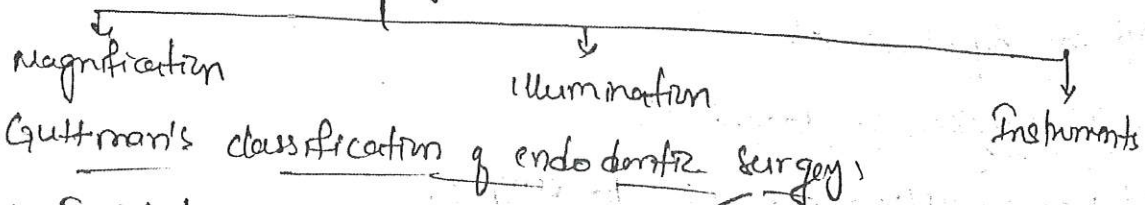 Magnification
Illumination
Instruments
Guttman's classification of endodontic surgery,